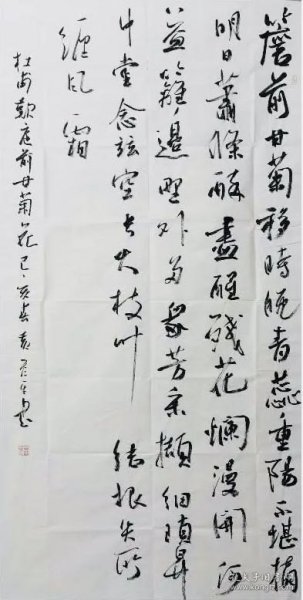 簷前甘菊移時晚青蕊重陽不堪摘
明日蕭條醉盡醒殘花爛漫開何
益籬邊野外多衆芳采擷細瑣昇
中堂念兹空長大枝叶結根失所
纏風霜
杜甫歎庭前甘菊花己亥春袁書